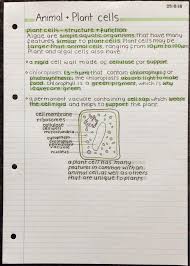 Animal + Plant cells
plant cells - structure + function
Algae are simple aquatic organisms that have many
features similar to plant cells. Plant cells may be
larger than animal cells, ranging from 10µm to 100µm
Plant and algal cells also have:
a rigid cell wall made of cellulose for support
chloroplasts
that contain chlorophyll for
photosynthesis. the chloroplasts absorb light to make
food. chlorophyll is green
a permanent vacuole containing cell sap which
the cell rigid and helps to support the plant.
cell membrane
ribosomes
cellulose
cell wall
mitochondria
cytoplasm
a plant cell has many
features in common with an
animal cell, as well as others
that are unique to plants